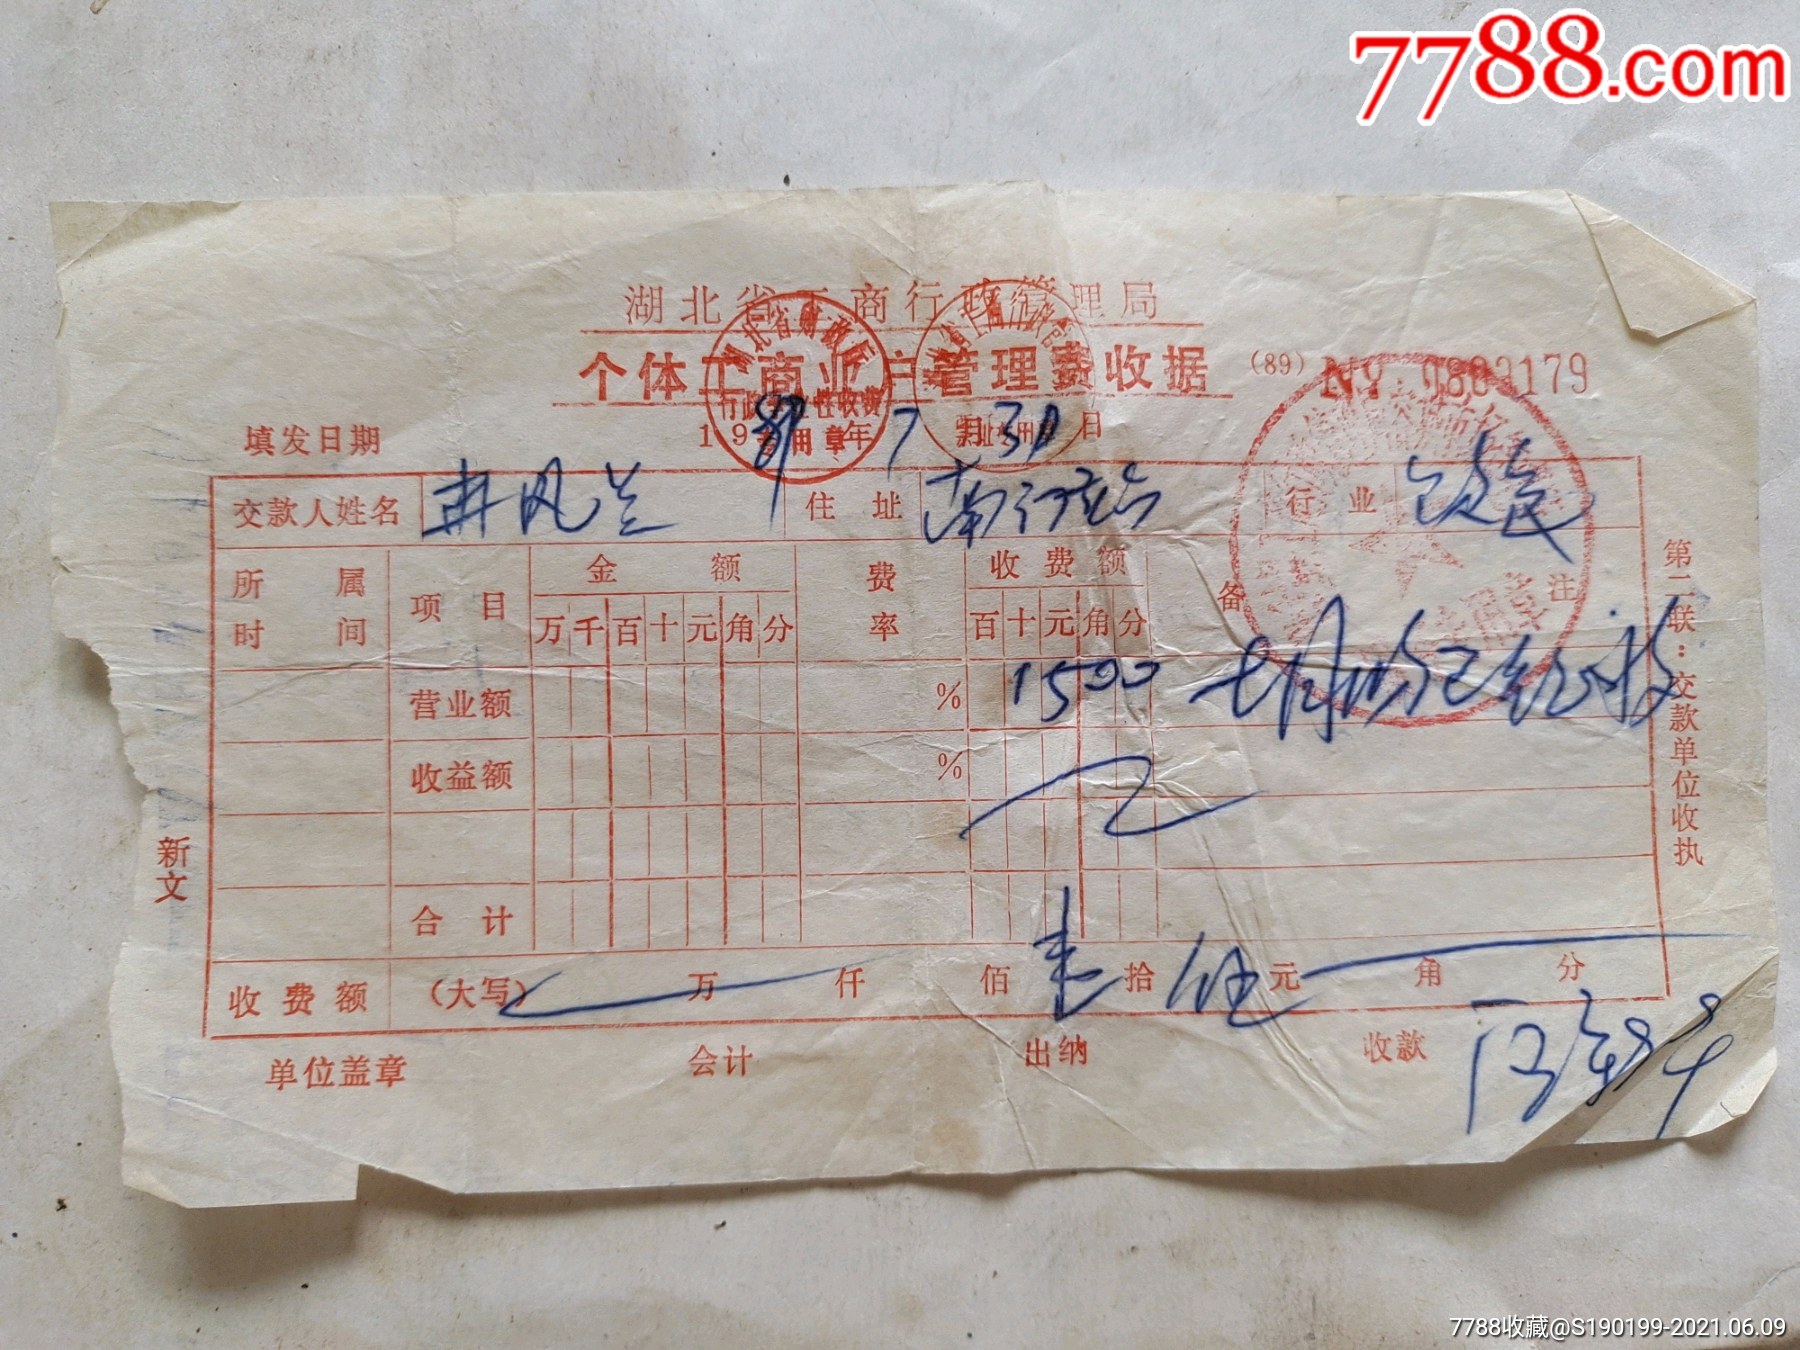 7788.com
湖北省工商行政管理局
个体工商业户管理费收据 (89) № 0803179
填发日期 1989年7月31日
交款人姓名 井凤兰 住址 行业
所属时间 项目 金额 费率 收费额 备注
万千百十元角分 百十元角分
营业额 % 1500
收益额 %
合计
收费额 (大写) 万 仟 佰 壹 拾 伍 元 角 分
单位盖章 会计 出纳 收款
第二联：交款单位收执
新文
湖北省财政厅
行政事业性收费
专用章
7788收藏@S190199-2021.06.09